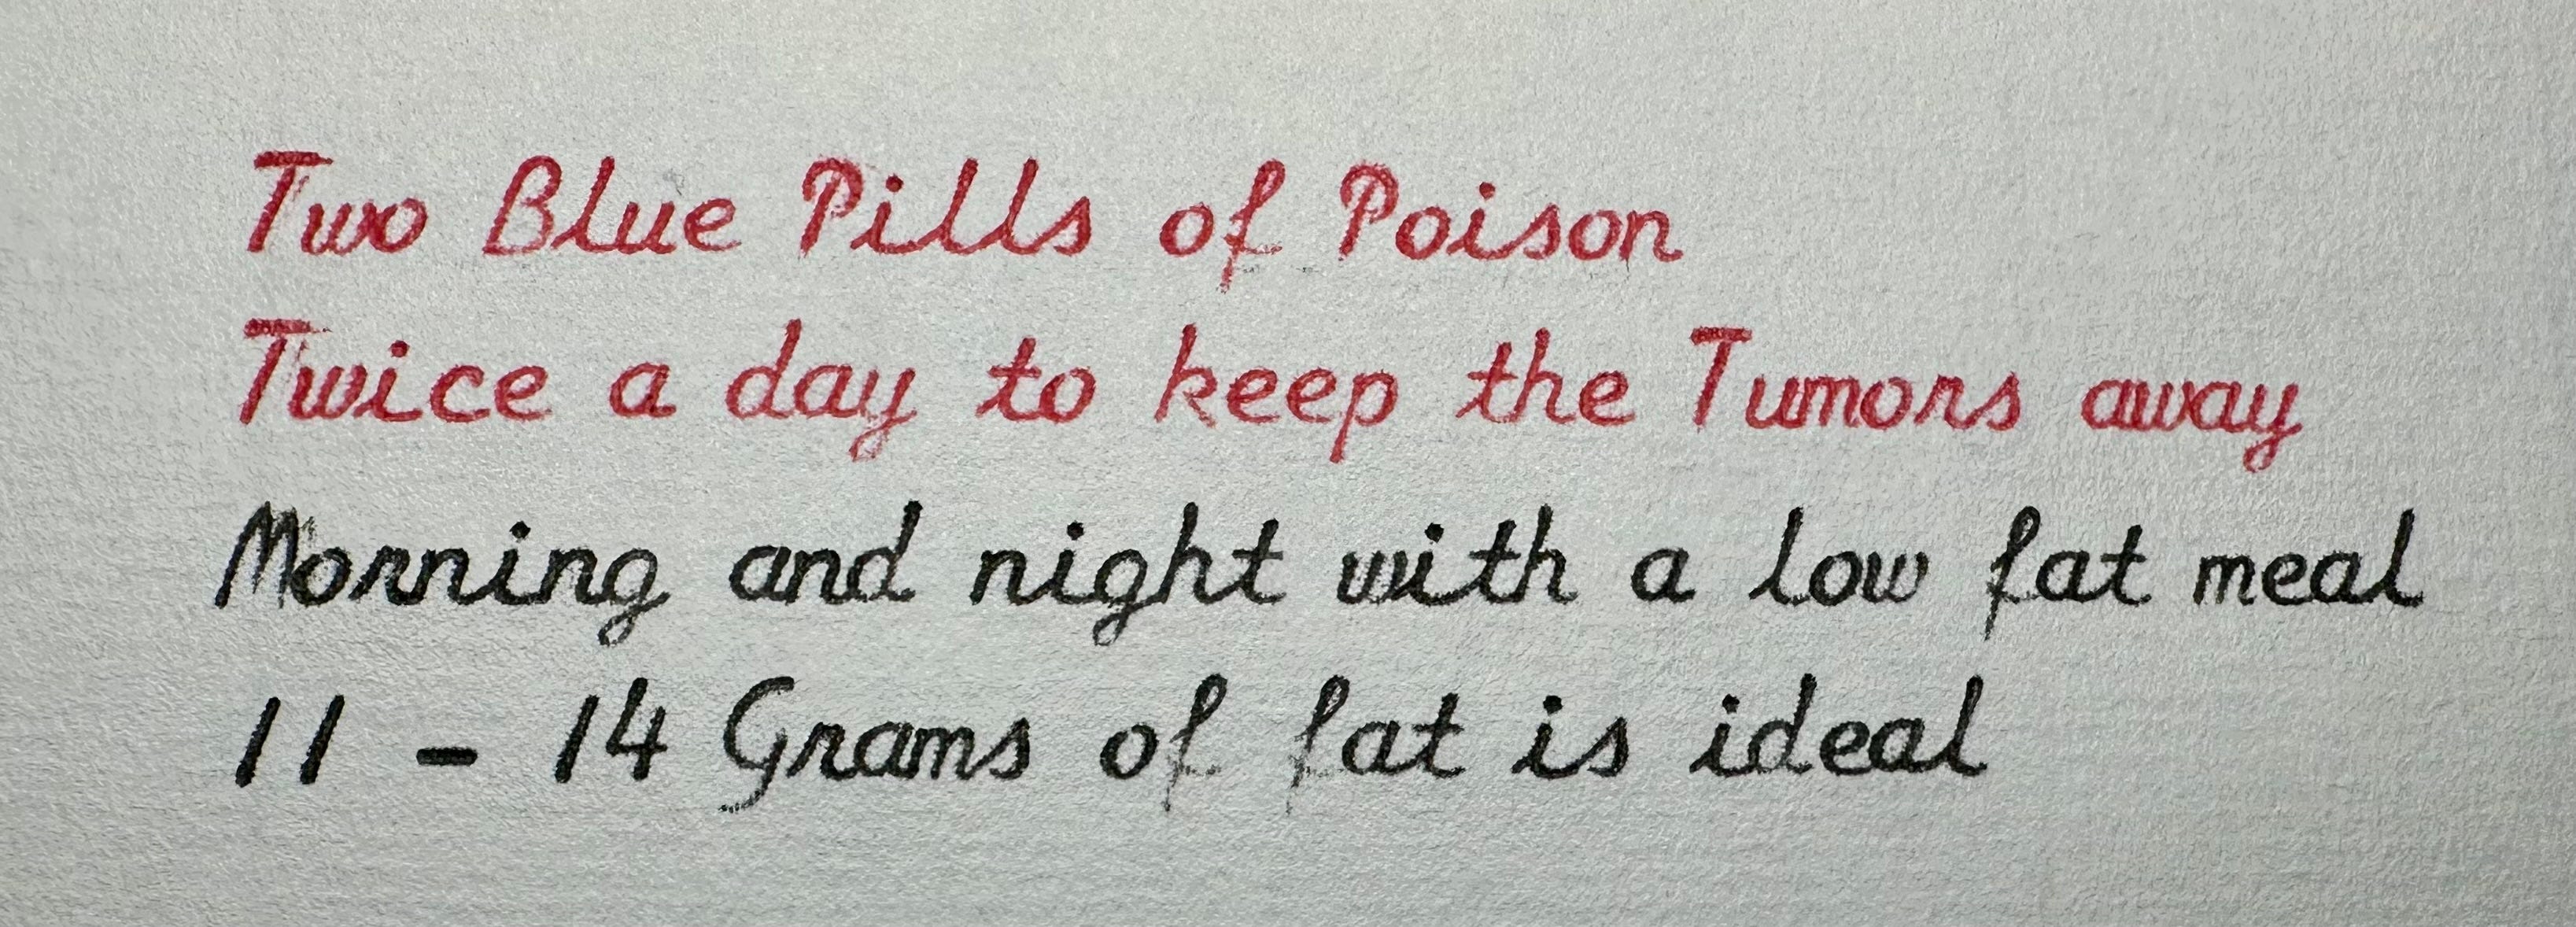 Two Blue Pills of Poison
Twice a day to keep the Tumors away
Morning and night with a low fat meal
11 - 14 Grams of fat is ideal